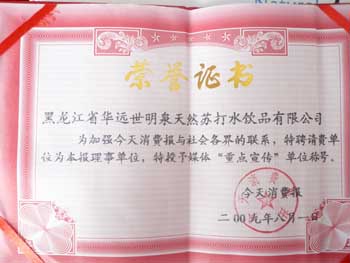 荣誉证书
黑龙江省华远世明泉天然苏打水饮品有限公司
为加强今天消费报与社会各界的联系，特聘请贵单
位为本报理事单位，特授予媒体“重点宣传”单位称号。
今天消费报
二00九年八月一日